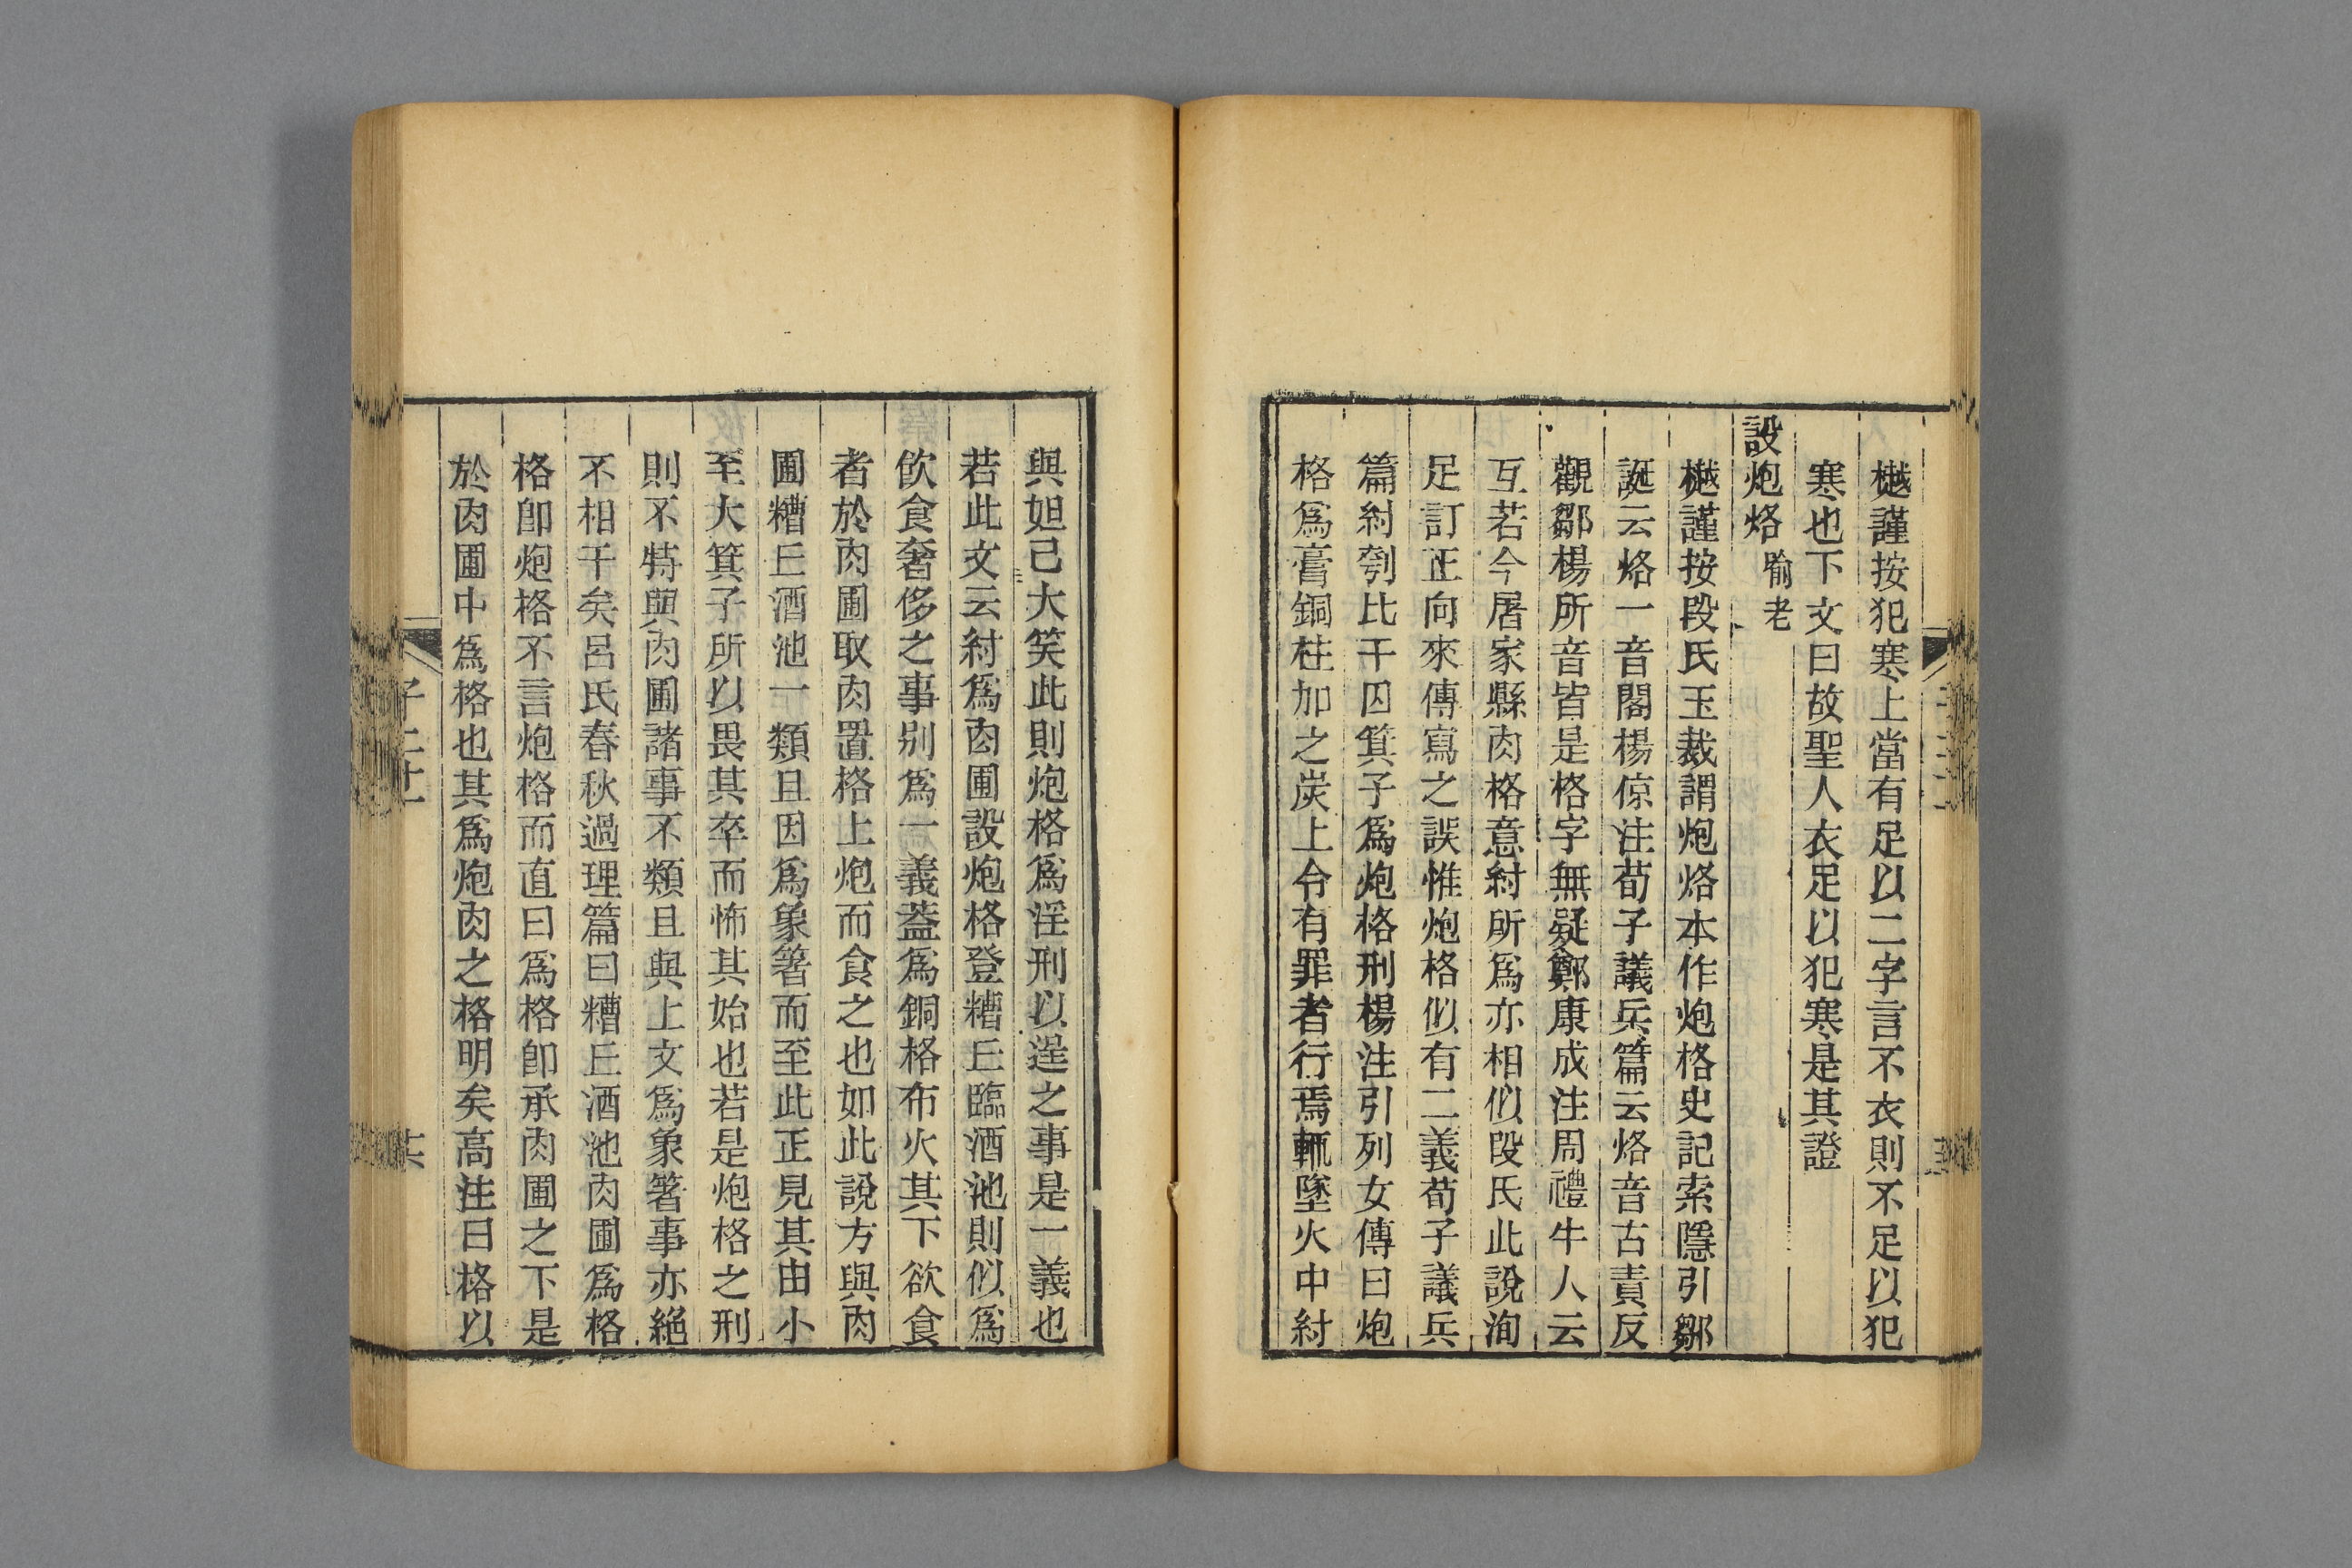 樾謹按犯寒上當有足以二字言不衣則不足以犯
寒也下文曰故聖人衣足以犯寒是其證
設炮烙喻老
樾謹按段氏玉裁謂炮烙本作炮格史記索隱引鄒
誕云烙一音閣楊倞注荀子議兵篇云烙音古責反
觀鄒楊所音皆是格字無疑鄭康成注周禮牛人云
互若今屠家縣肉格意紂所爲亦相似段氏此說洵
足訂正向來傳寫之誤惟炮格似有二義荀子議兵
篇紂刳比干囚箕子爲炮格刑楊注引列女傳曰炮
格爲膏銅柱加之炭上令有罪者行焉輒墜火中紂
與妲己大笑此則炮格爲淫刑以逞之事是一義也
若此文云紂爲肉圃設炮格登糟丘臨酒池則似爲
飮食奢侈之事別爲一義葢爲銅格布火其下欲食
者於肉圃取肉置格上炮而食之也如此說方與肉
圃糟丘酒池一類且因爲象箸而至此正見其由小
至大箕子所以畏其卒而怖其始也若是炮格之刑
則不特與肉圃諸事不類且與上文爲象箸事亦絕
不相干矣呂氏春秋過理篇曰糟丘酒池肉圃爲格
格卽炮格不言炮格而直曰爲格卽承肉圃之下是
於肉圃中爲格也其爲炮肉之格明矣高注曰格以
子二十一